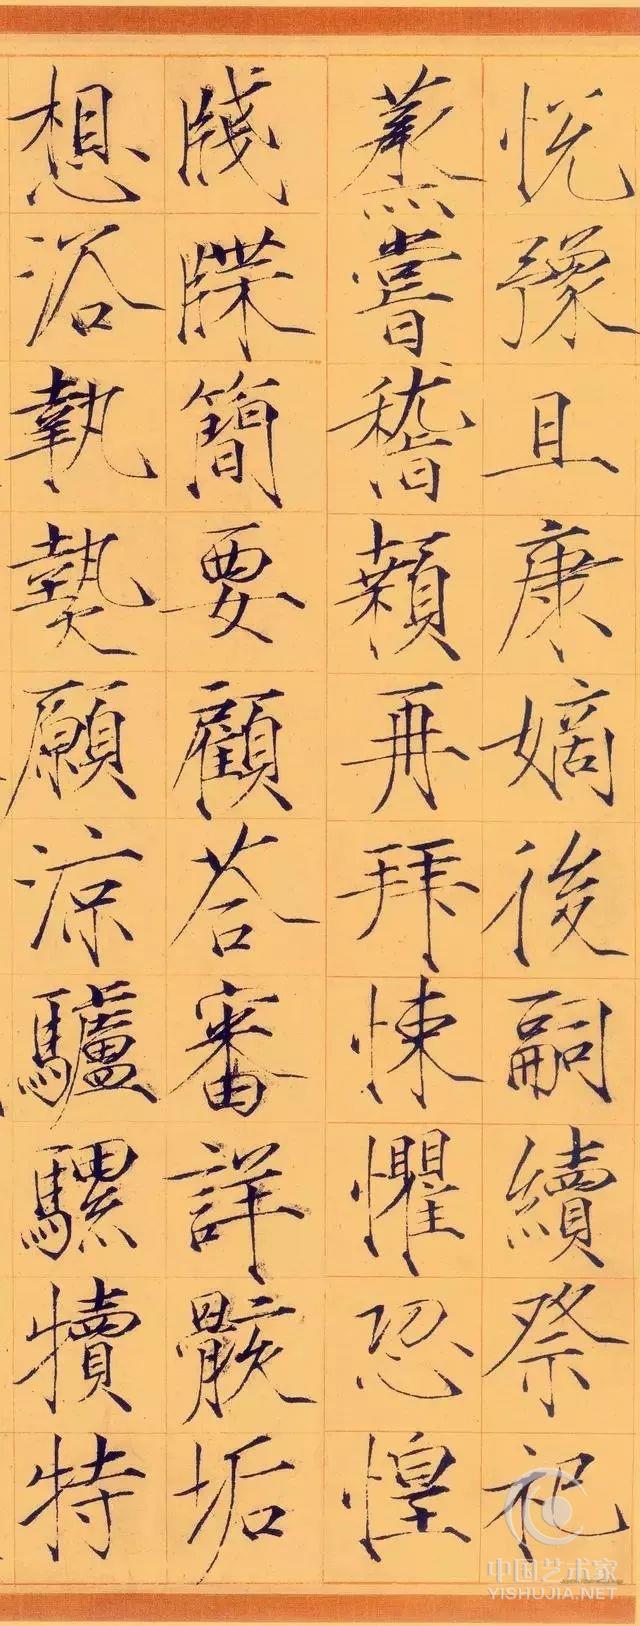 悅豫且康嫡後嗣續祭祀
蒸嘗稽顙再拜悚懼恐惶
牋牒簡要顧荅審詳骸垢
想浴執熱願涼驢騾犢特
中国艺术家
YISHUJIA.NET